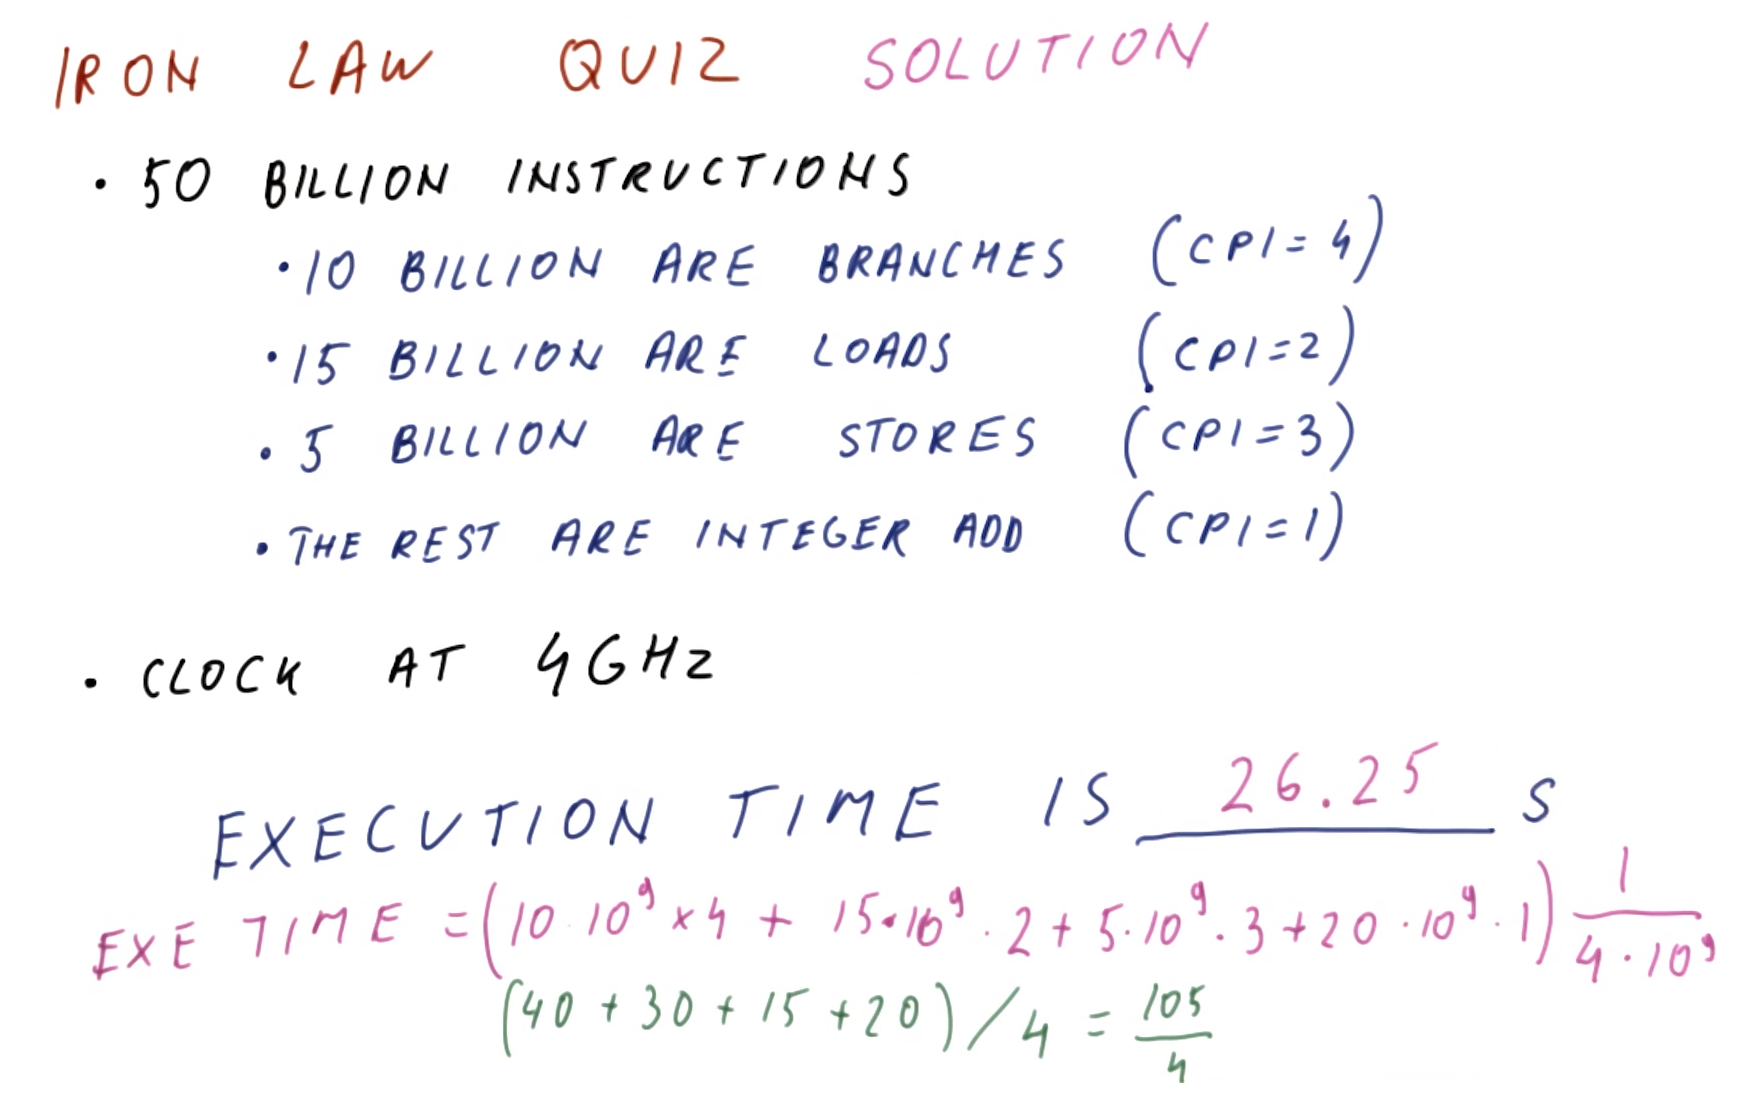 IRON LAW QUIZ SOLUTION
• 50 BILLION INSTRUCTIONS
• 10 BILLION ARE BRANCHES (CPI = 4)
• 15 BILLION ARE LOADS (CPI = 2)
• 5 BILLION ARE STORES (CPI = 3)
• THE REST ARE INTEGER ADD (CPI = 1)
• CLOCK AT 4GHz
EXECUTION TIME IS 26.25 S
EXE TIME = (10·10⁹ × 4 + 15·10⁹·2 + 5·10⁹·3 + 20·10⁹·1) 1/4·10⁹
(40 + 30 + 15 + 20) / 4 = 105/4